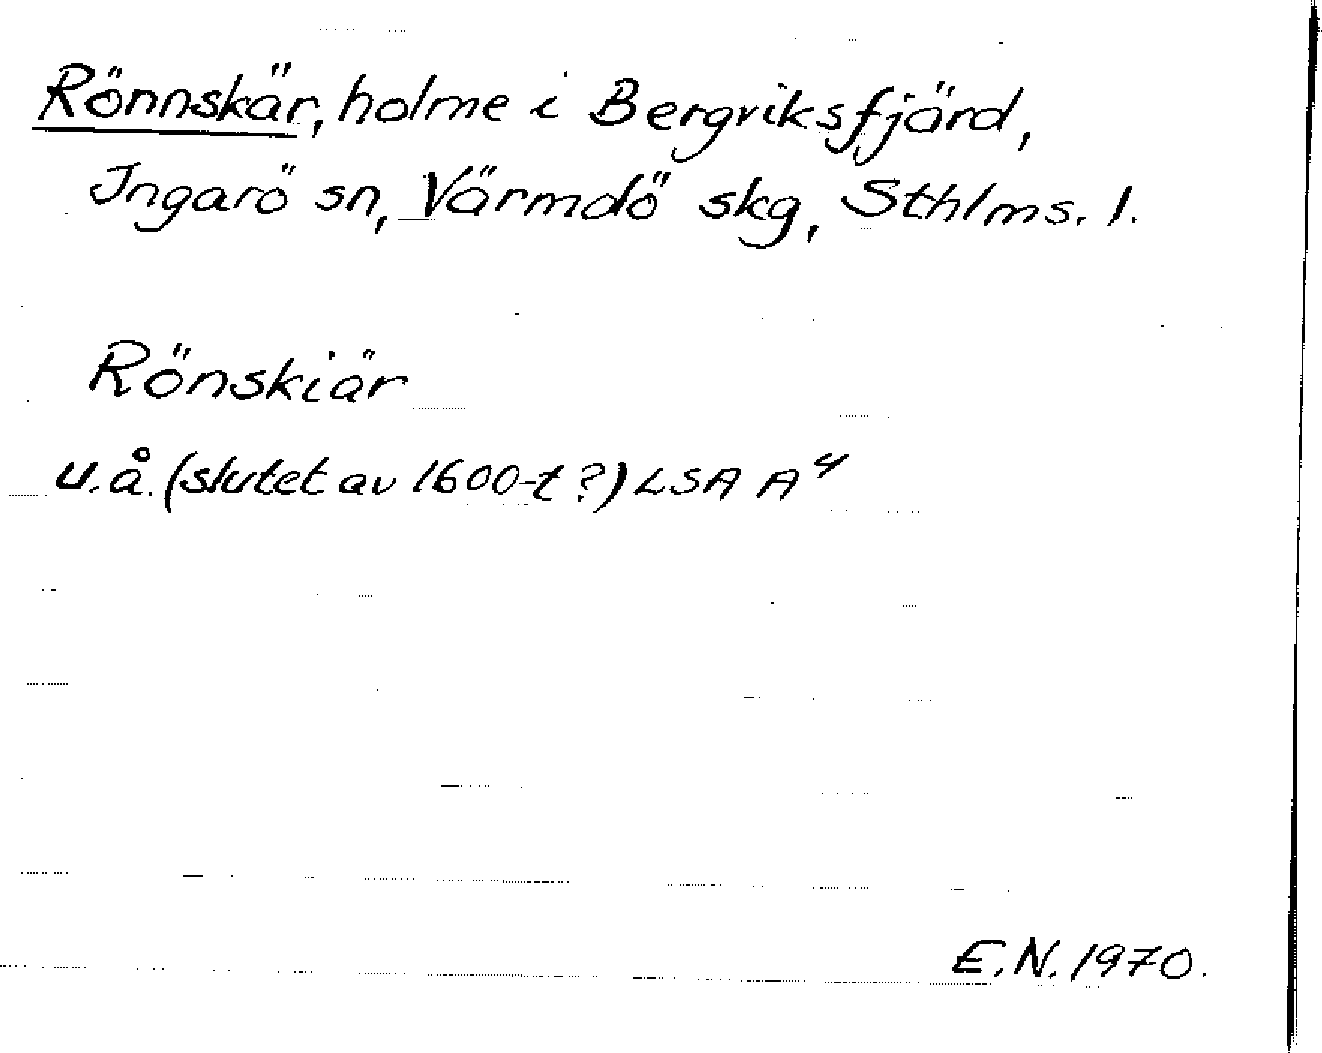 Rönnskär, holme i Bergviksfjärd,
Ingarö sn, Värmdö skg, Sthlms. l.
Rönskiär
u.å. (slutet av 1600-t ?) LSA A⁴
E.N. 1970.